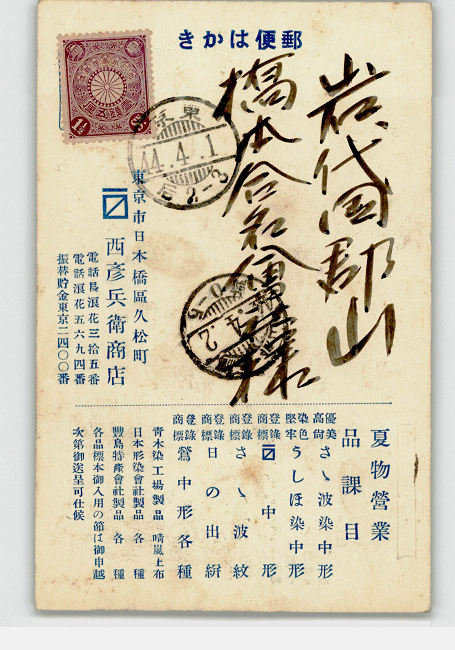 郵便はかき
岩代国郡山
橋本合名会社様
東京
44.4.1
后2-3
1½
東京市日本橋區久松町
西彦兵衛商店
電話長浪花三拾五番
電話浪花五六九四番
振替貯金東京二四〇〇番
夏物營業
品課目
優美高尚 さゝ波染中形
染色堅牢 うしほ染中形
登錄商標 中形
登錄商標 さゝ波紋
登錄商標 日の出絣
登錄商標 鶯中形各種
青木染工場製品 晴嵐上布
日本形染會社製品 各種
豐島特產會社製品 各種
各品標本御入用の節は御申越
次第御送呈可仕候